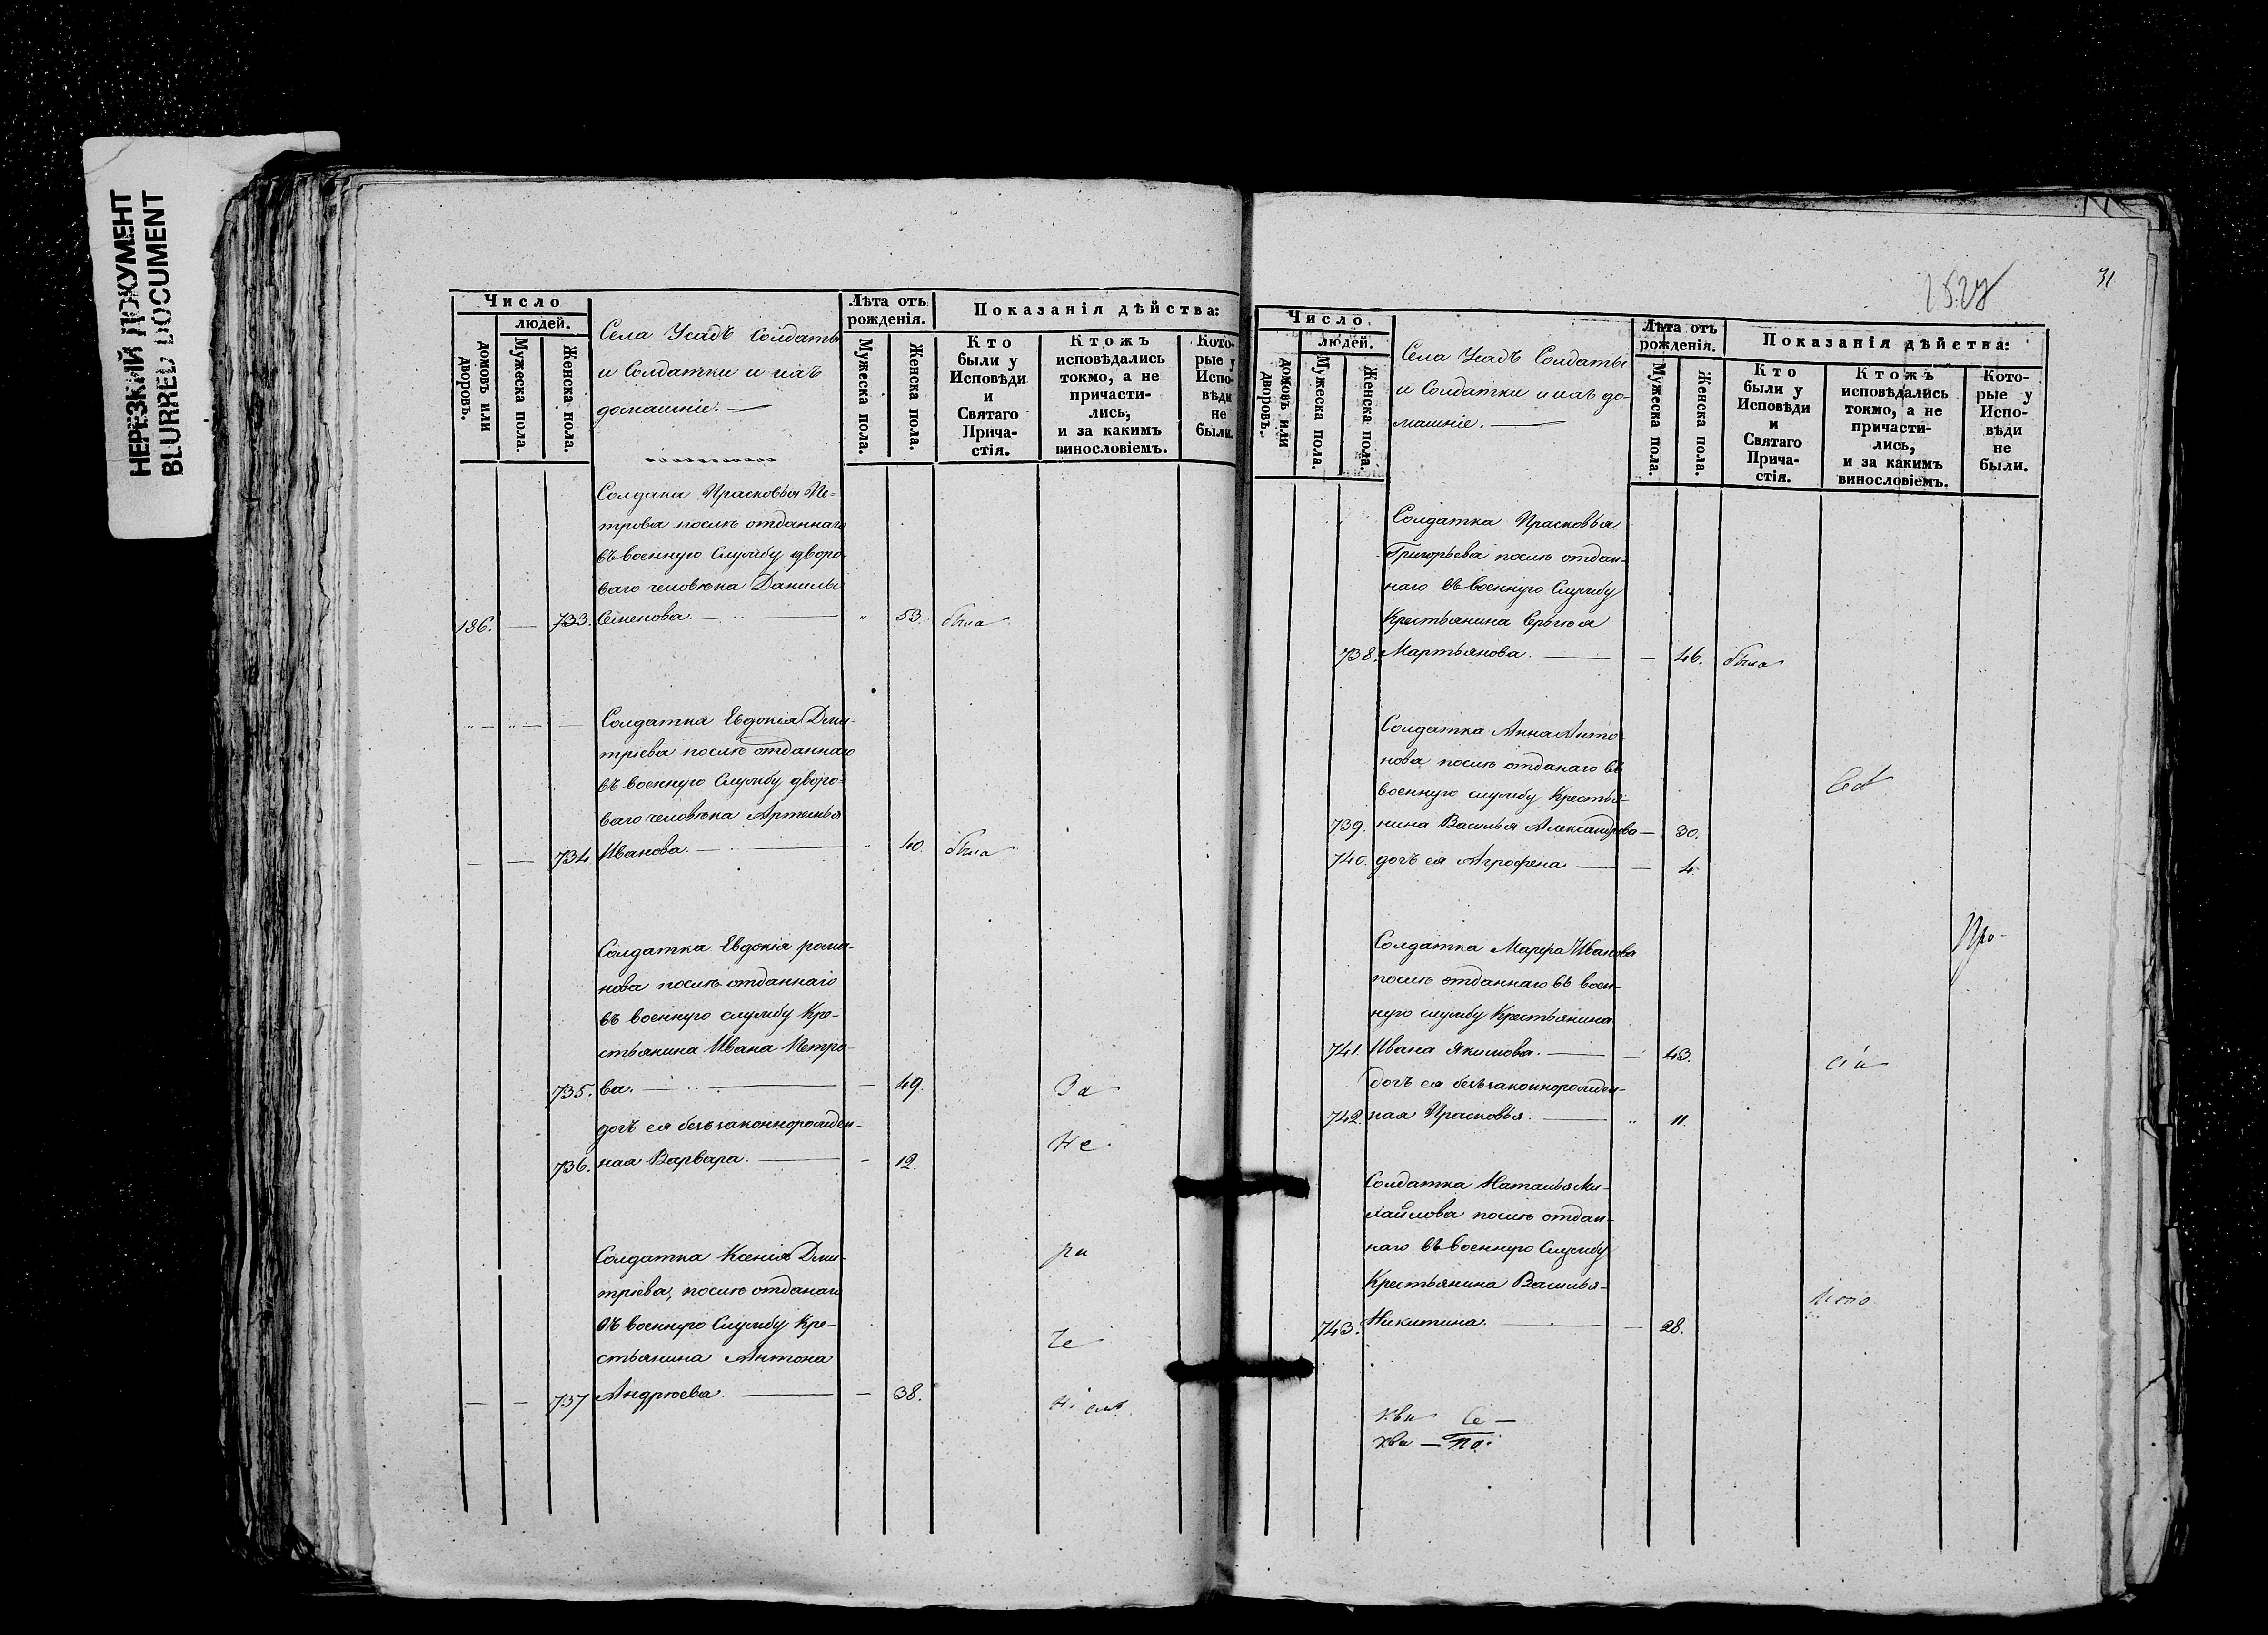 НЕРЕЗКИЙ ДОКУМЕНТ
BLURRED DOCUMENT
Число
людей.
домовъ или дворовъ.
Мужеска пола.
Женска пола.
Села Усадъ Солдаты
и Солдатки и ихъ
домашніе. —
Лѣта отъ рожденія.
Мужеска пола.
Женска пола.
Показанія дѣйства:
Кто были у Исповѣди и Святаго Прича-стія.
Ктожъ исповѣдались токмо, а не причасти-лись, и за какимъ винословіемъ.
Кото-рые у Испо-вѣди не были.
Солдака Прасковья Пе-
трова послѣ отданнаго
въ военную Службу дворо-
ваго человѣка Данилы
186. — 733. Семенова. — „ 53. была
Солдатка Евдокія Дми-
тріева послѣ отданнаго
въ военную Службу дворо-
ваго человѣка Артемья
— — 734 Иванова. — „ 40 была
Солдатка Евдокія рома-
нова послѣ отданнаго
въ военную службу Кре-
стьянина Ивана Петро-
735. ва. — — 49. За
дочъ ея безъзаконнорожден- Не
736. ная Варвара. — - 12.
Солдатка Ксенія Дми- ра
тріева, послѣ отданаго
въ военную Службу Кре- че
стьянина Антона
— — 737 Андрѣева. — — 38.
31
Число
людей.
домовъ или дворовъ.
Мужеска пола.
Женска пола.
Села Усадъ Солдаты
и Солдатки и ихъ до-
машніе. —
Лѣта отъ рожденія.
Мужеска пола.
Женска пола.
Показанія дѣйства:
Кто были у Исповѣди и Святаго Прича-стія.
Ктожъ исповѣдались токмо, а не причасти-лись, и за какимъ винословіемъ.
Кото-рые у Испо-вѣди не были.
Солдатка Прасковья
Григорьева послѣ отдан-
наго въ военную Службу
Крестьянина Сергѣя
738. Мартьянова. — — 46. была
Солдатка Анна Анто-
нова послѣ отданаго въ
военную службу Крестья-
739. нина Василья Александрова — 30.
740. дочъ ея Агрофена — — 4.
Солдатка Марфа Иванова Про-
послѣ отданнаго въ воен-
ную службу Крестьянина
741. Ивана Якимова. — — 43.
дочъ ея безъзаконнорожден-
742. ная Прасковья. — „ 11.
Солдатка Наталья Ми-
хайлова послѣ отдан-
наго въ военную Службу
Крестьянина Василья
743. Никитина. — — 28.